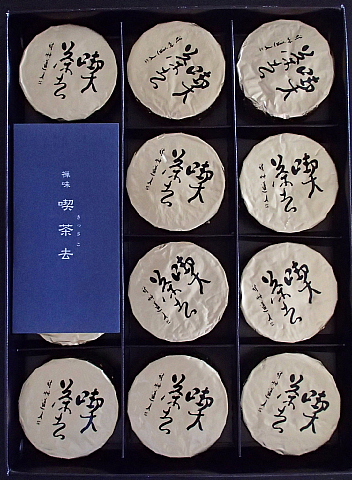 禅味
喫茶去
きっさこ
喫茶去
喫茶去
喫茶去
喫茶去
喫茶去
喫茶去
喫茶去
喫茶去
喫茶去
喫茶去